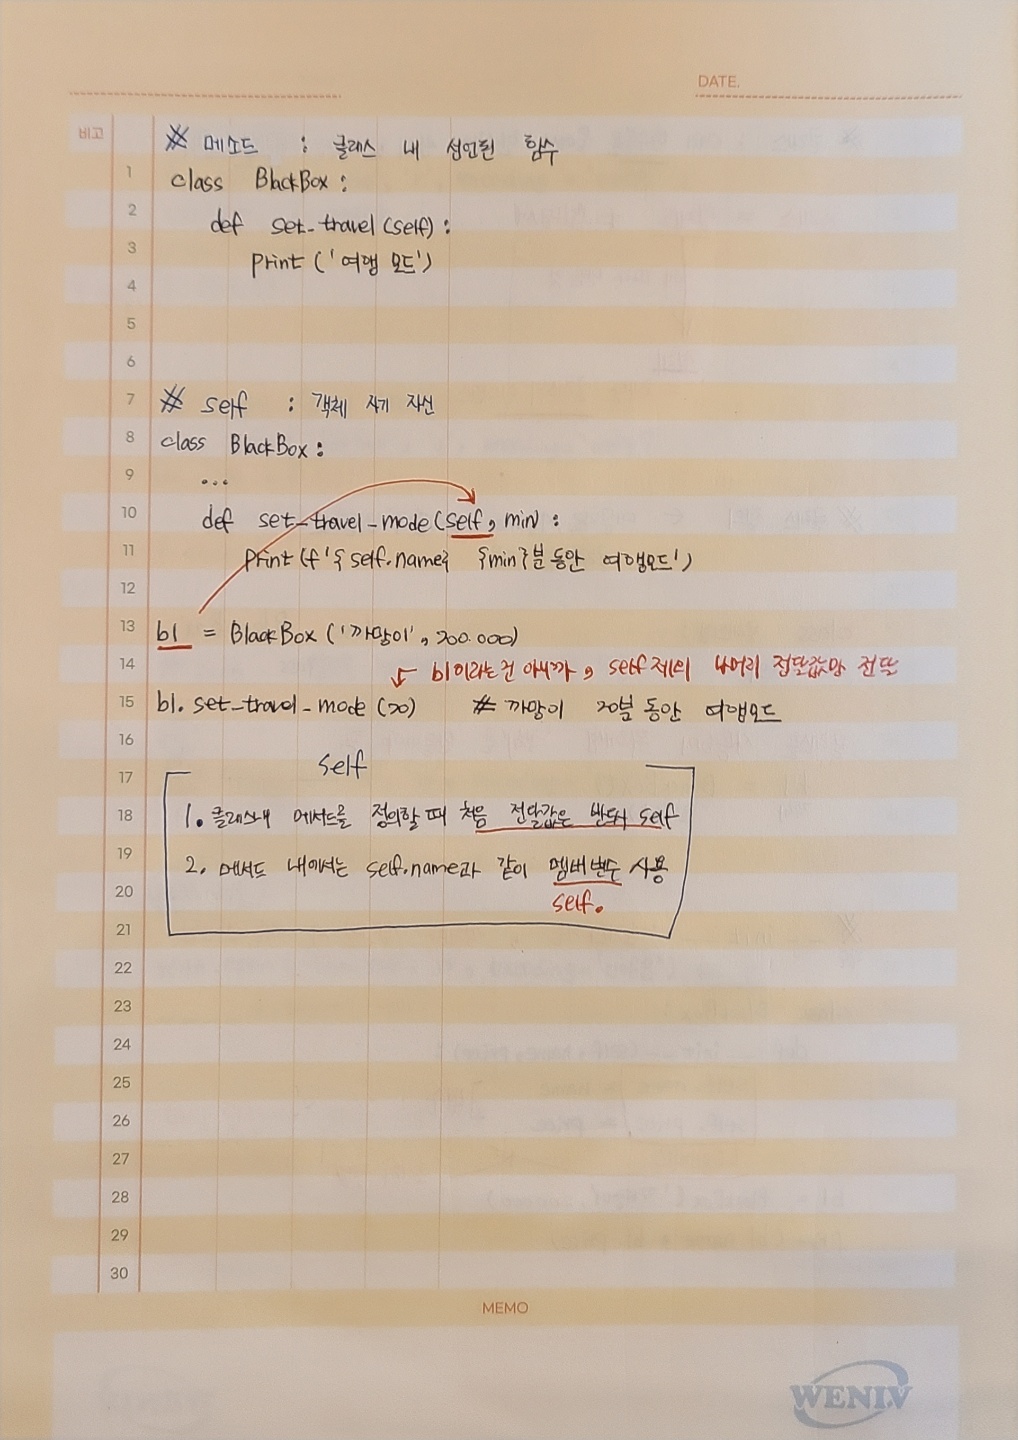 DATE.
비고
※ 메소드 : 클래스 내 선언된 함수
1 class BlackBox :
2 def set_travel (self) :
3 print ('여행 모드')
4
5
6
7 ※ self : 객체 자기 자신
8 class BlackBox :
9 ...
10 def set_travel_mode (self, min) :
11 print (f'{self.name} {min}분 동안 여행모드')
12
13 b1 = BlackBox ('까망이', 200.000)
14 b1이라는건 아니까, self 제외 나머리 전달값만 전달
15 b1. set_travel_mode (20) # 까망이 20분 동안 여행모드
16
17 self
18 1. 클래스내 메서드를 정의할 때 처음 전달값은 반드시 self
19 2. 메서드 내에서는 self.name과 같이 멤버변수 사용
20 self.
21
22
23
24
25
26
27
28
29
30
MEMO
WENIV